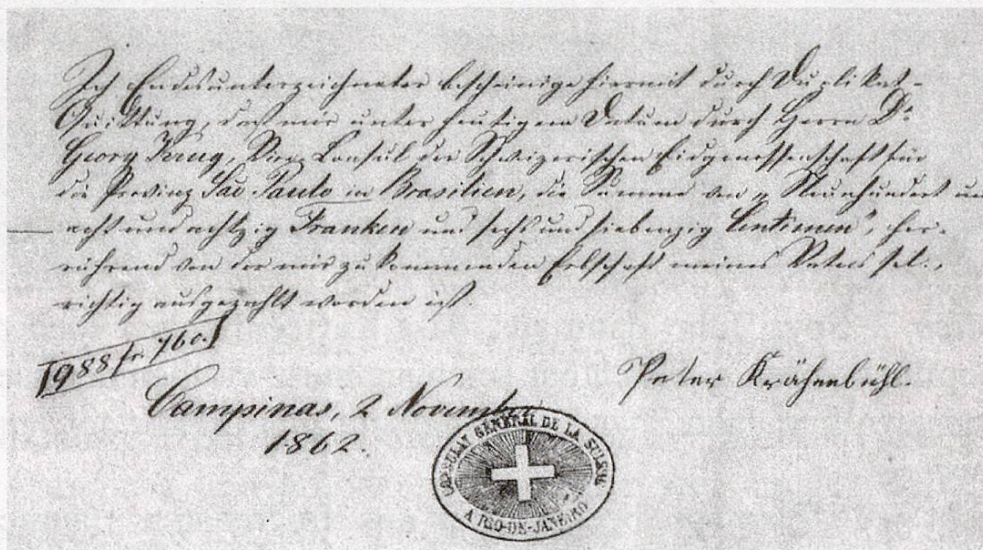 Ich Endesunterzeichneter bescheinige hiermit durch Duplikat-
Quittung, daß mir unter heutigem Datum durch Herrn Dr
Georg Krug, Vice-Consul der Schweizerischen Eidgenossenschaft für
die Provinz São Paulo in Brasilien, die Summe von „Neunhundert un
acht und achtzig Franken und sechs und siebenzig Centimen", her-
rührend von der mir zukommenden Erbschaft meines Vaters sel.,
richtig ausgezahlt worden ist.
988 fr. 76c.
Peter Krähenbühl.
Campinas, 2 November
1862.
CONSULAT GENERAL DE LA SUISSE
A RIO-DE-JANEIRO